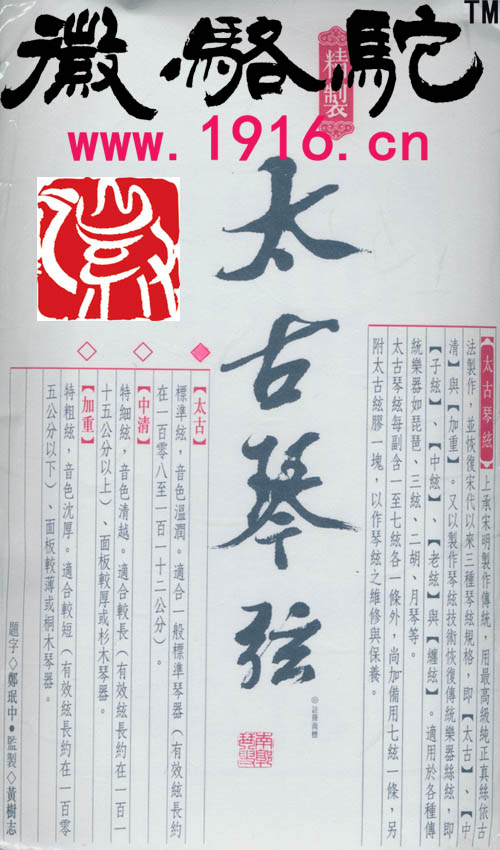 徽·駱駝 TM
精製
www.1916.cn
太古琴弦
【太古琴絃】上承宋明製作傳統，用最高級純正真絲依古
法製作，並恢復宋代以來三種琴絃規格，即【太古】、【中
清】與【加重】。又以製作琴絃技術恢復傳統樂器絲絃，即
【子絃】、【中絃】、【老絃】與【纏絃】。適用於各種傳
統樂器如琵琶、三絃、二胡、月琴等。
太古琴絃每副含一至七絃各一條外，尚加備用七絃一條，另
附太古絃膠一塊，以作琴絃之維修與保養。
®註冊商標
◆【太古】
標準絃，音色溫潤。適合一般標準琴器（有效絃長約
在一百零八至一百一十二公分）。
◇【中清】
特細絃，音色清越。適合較長（有效絃長約在一百一
十五公分以上）、面板較厚或杉木琴器。
◇【加重】
特粗絃，音色沈厚。適合較短（有效絃長約在一百零
五公分以下）、面板較薄或桐木琴器。
題字◇鄭珉中●監製◇黃樹志